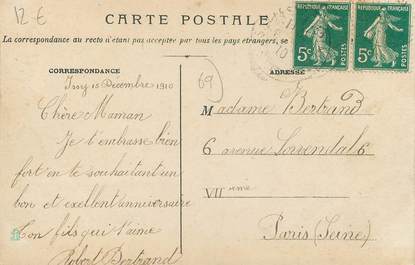 12 €
CARTE POSTALE
La correspondance au recto n'étant pas acceptée par tous les pays étrangers, se
REPUBLIQUE FRANÇAISE
5c
POSTES
REPUBLIQUE FRANÇAISE
5c
POSTES
CORRESPONDANCE
ADRESSE
69
Issy 15 Décembre 1910
Chère Maman
Je t'embrasse bien
fort en te souhaitant un
bon et excellent anniversaire
Ton fils qui t'aime
Robert Bertrand
Madame Bertrand
6 avenue 6
VIIième
Paris (Seine)